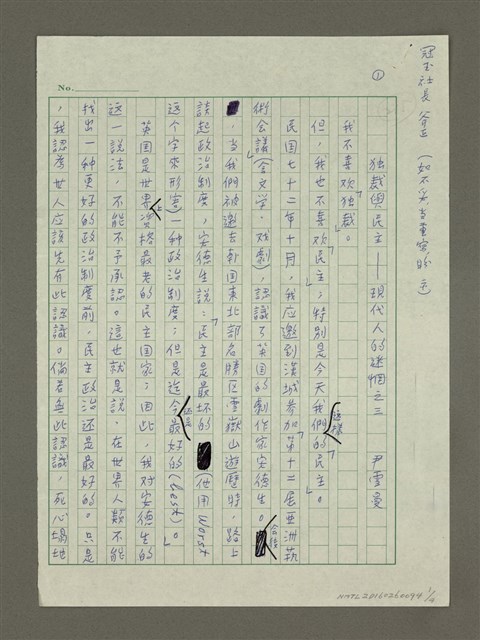 冠玉社長 斧正 （如不妥
①
獨裁與民主——現代人的迷惘之三 尹雪曼
我不喜欢獨裁。
但，我也不喜欢「民主」；特別是今天我們這樣的「民主」。
民国七十二年十月，我应邀到漢城參加「第十二屆亞洲藝
術会議」（含文学、戏劇），認識了英国的劇作家安德生。会後
，当我們被邀去韩国東北部名勝区雪嶽山遊歷時，路上
談起政治制度，安德生說：「民主是最坏的（他用 Worst
这个字來形容）一种政治制度；但是迄今还是最好的（best）」。
英国是世界上資格最老的民主国家；因此，我对安德生的
这一說法，不能不予承認。這也就是說，在世界人類不能
找出一种更好的政治制度前，民主政治还是最好的。只是
，我認为世人应該先有此認識。倘若無此認識，死心塌地
No.
NMTL20160260094 1/4